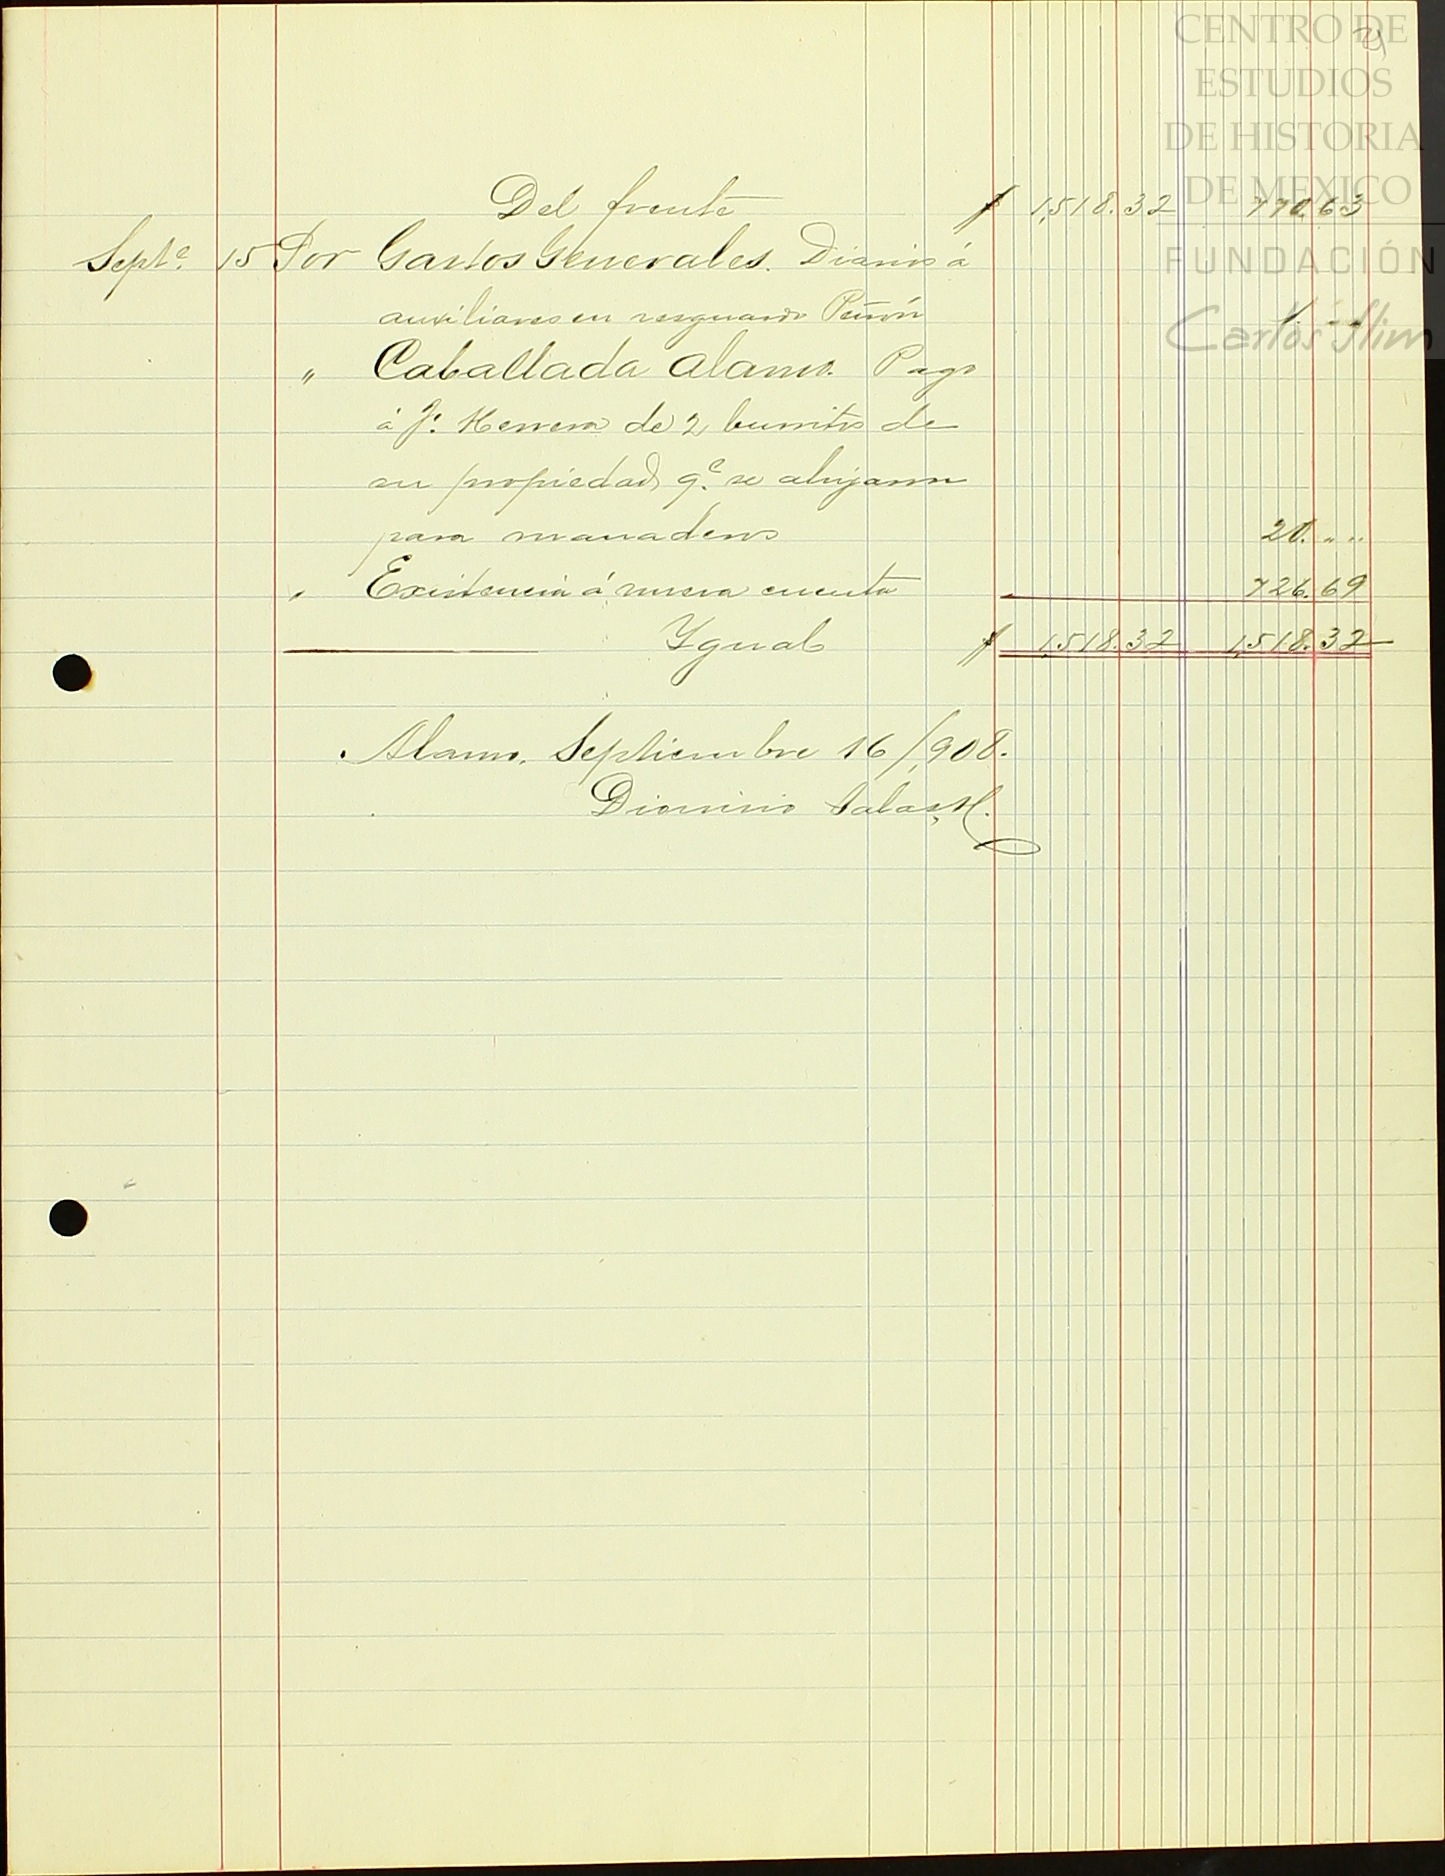 CENTRO DE
ESTUDIOS
DE HISTORIA
DE MEXICO
FUNDACIÓN
Carlos Slim
Del frente $ 1,518.32 770.63
Septe. 15 Por Gastos Generales. Diarios á
auxiliares en resguardo Peñón 1. " "
" Caballada Alamo. Pago
á J. Herrera de 2 burritos de
su propiedad q.e se ahijaron
para manaderos 20. " "
" Existencia á nueva cuenta 726.69
Ygual $ 1,518.32 1,518.32
Alamo, Septiembre 16/,908.
Dionisio Salas H.